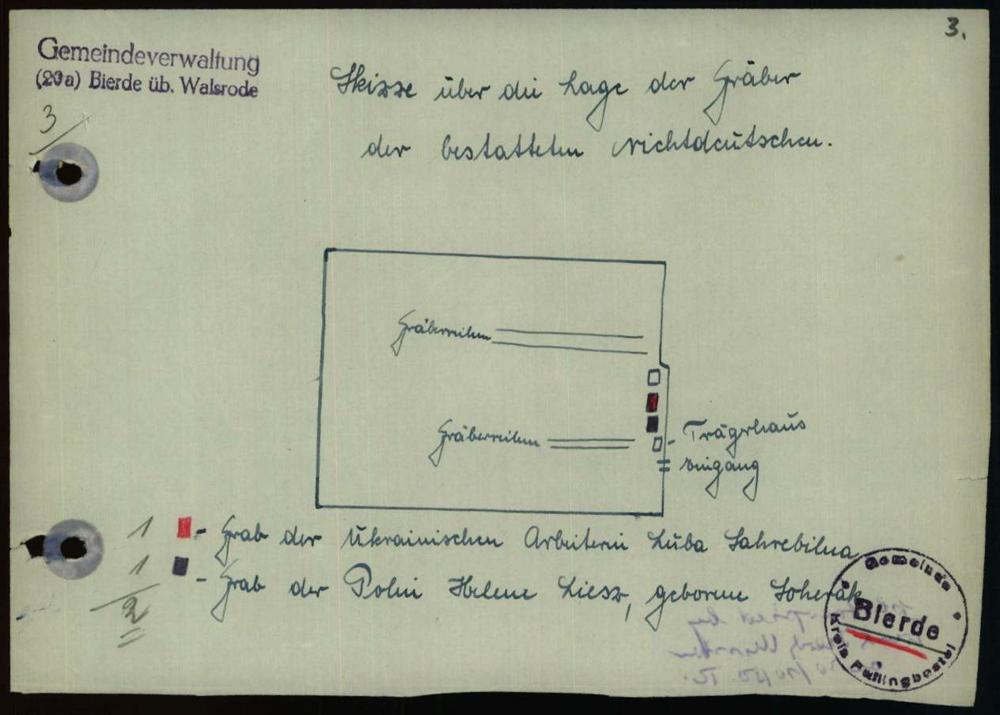 3.
Gemeindeverwaltung
(20a) Bierde üb. Walsrode
3
Skizze über die Lage der Gräber
der bestatteten Nichtdeutschen.
Gräberreihen
Gräberreihen
- Trägerhaus
Eingang
1 - Grab der Ukrainischen Arbeiterin Luba Sahrebilna
1 - Grab der Polin Helene Liesz, geborene Soherak
2
Gemeinde
Bierde
Kreis Fallingbostel